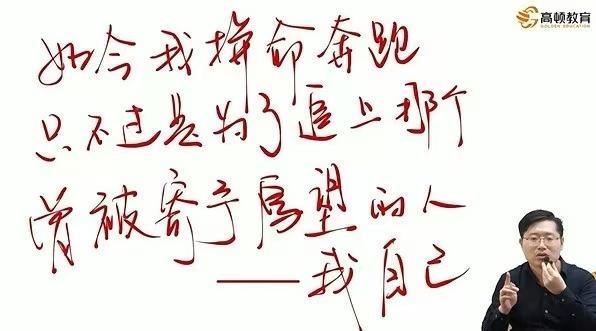 高顿教育
GOLDEN EDUCATION
如今我拼命奔跑
只不过是为了追上那个
曾被寄予厚望的人
——我自己